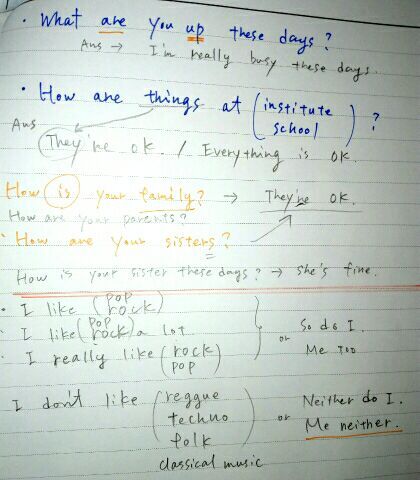 · What are you up these days?
Ans → I'm really busy these days.
· How are things at (institute
school) ?
Ans
They're ok. / Everything is OK.
How is your family? → They're OK.
How are your parents?
· How are your sisters?
How is your sister these days? → she's fine.
· I like (pop
rock)
· I like (pop
rock) a lot
· I really like (rock
pop)
So do I.
or
Me too
I don't like (reggue
techno
folk
classical music
or
Neither do I.
Me neither.